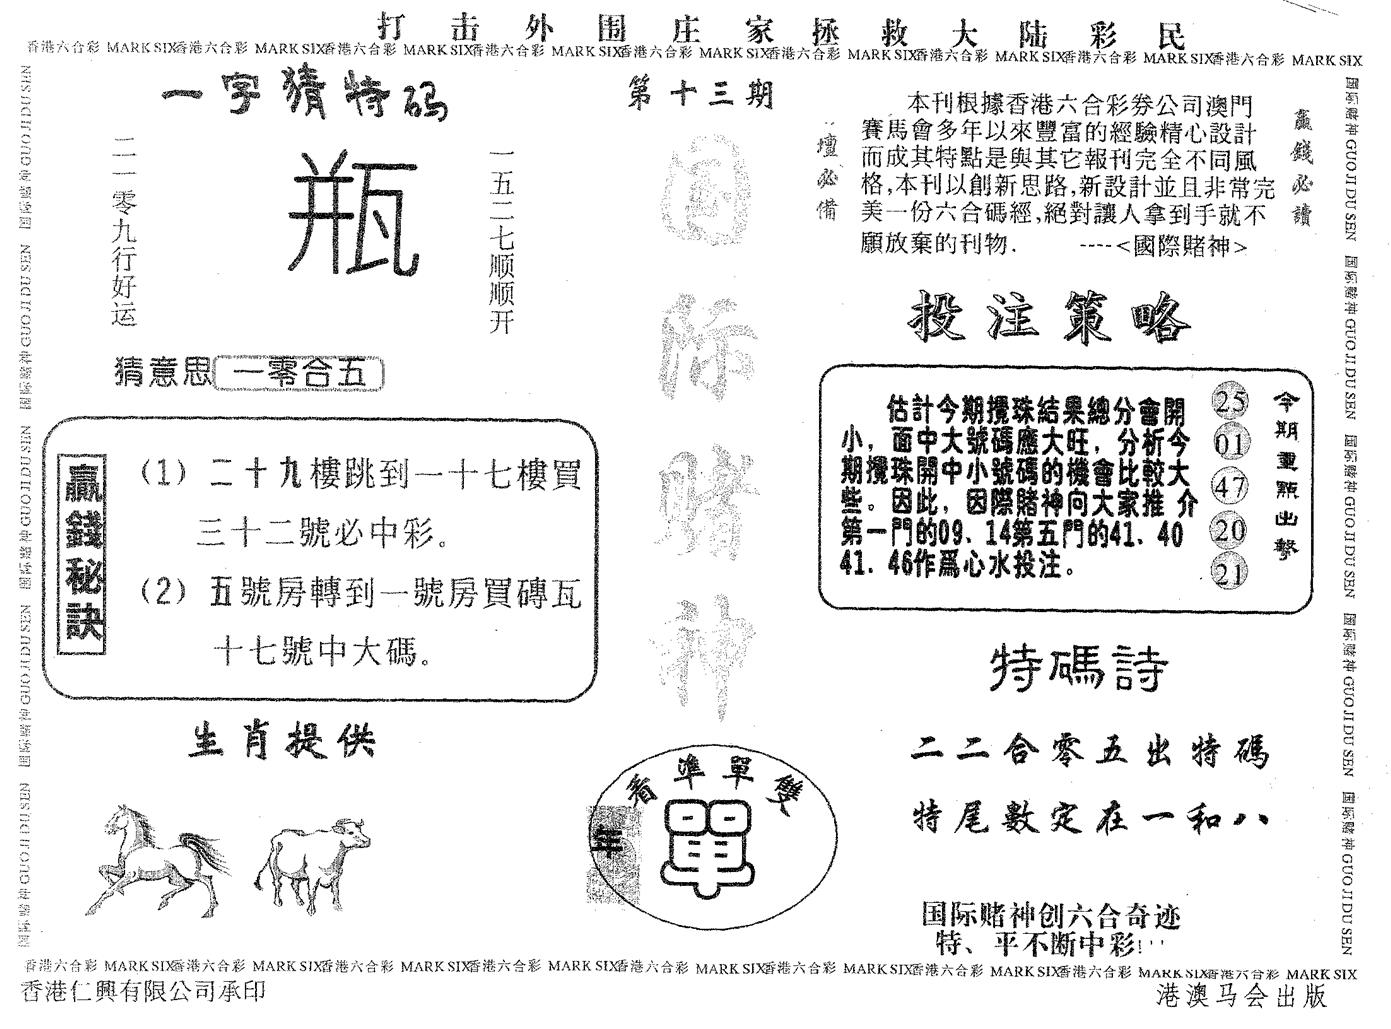 打击外围庄家拯救大陆彩民
香港六合彩 MARK SIX香港六合彩 MARK SIX香港六合彩 MARK SIX香港六合彩 MARK SIX香港六合彩 MARK SIX香港六合彩 MARK SIX香港六合彩 MARK SIX香港六合彩 MARK SIX香港六合彩 MARK SIX
一字猜特码
二一零九行好运
瓶
一五二七顺顺开
猜意思 一零合五
贏錢秘訣
(1) 二十九樓跳到一十七樓買
三十二號必中彩。
(2) 五號房轉到一號房買磚瓦
十七號中大碼。
生肖提供
第十三期
国际赌神
看準單雙
年
單
壇必備
本刊根據香港六合彩券公司澳門
賽馬會多年以來豐富的經驗精心設計
而成其特點是與其它報刊完全不同風
格,本刊以創新思路,新設計並且非常完
美一份六合碼經,絕對讓人拿到手就不
願放棄的刊物. ----<國際賭神>
贏錢必讀
投注策略
估計今期攪珠結果總分會開
小，面中大號碼應大旺，分析今
期攪珠開中小號碼的機會比較大
些。因此，因際賭神向大家推介
第一門的09．14第五門的41．40
41．46作爲心水投注。
25
01
47
20
21
今期重點出擊
特碼詩
二二合零五出特碼
特尾數定在一和八
国际赌神创六合奇迹
特、平不断中彩!
国际赌神 GUO JI DU SEN 国际赌神 GUO JI DU SEN 国际赌神 GUO JI DU SEN 国际赌神 GUO JI DU SEN 国际赌神 GUO JI DU SEN
国际赌神 GUO JI DU SEN 国际赌神 GUO JI DU SEN 国际赌神 GUO JI DU SEN 国际赌神 GUO JI DU SEN 国际赌神 GUO JI DU SEN
香港六合彩 MARK SIX香港六合彩 MARK SIX香港六合彩 MARK SIX香港六合彩 MARK SIX香港六合彩 MARK SIX香港六合彩 MARK SIX香港六合彩 MARK SIX香港六合彩 MARK SIX香港六合彩 MARK SIX
香港仁興有限公司承印
港澳马会出版